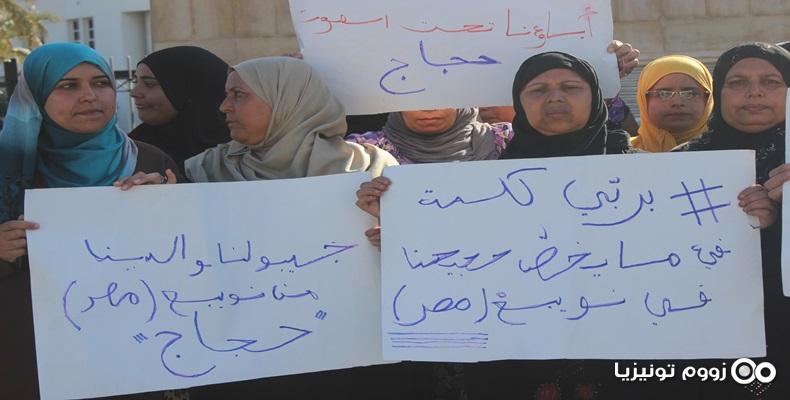 تحت
حجاج
جيبولنا والدينا
من نويبع (مصر)
"حجاج"
# بربّي كلمة
في ما يخصّ حجيجنا
في نويبع (مصر)
زووم تونيزيا